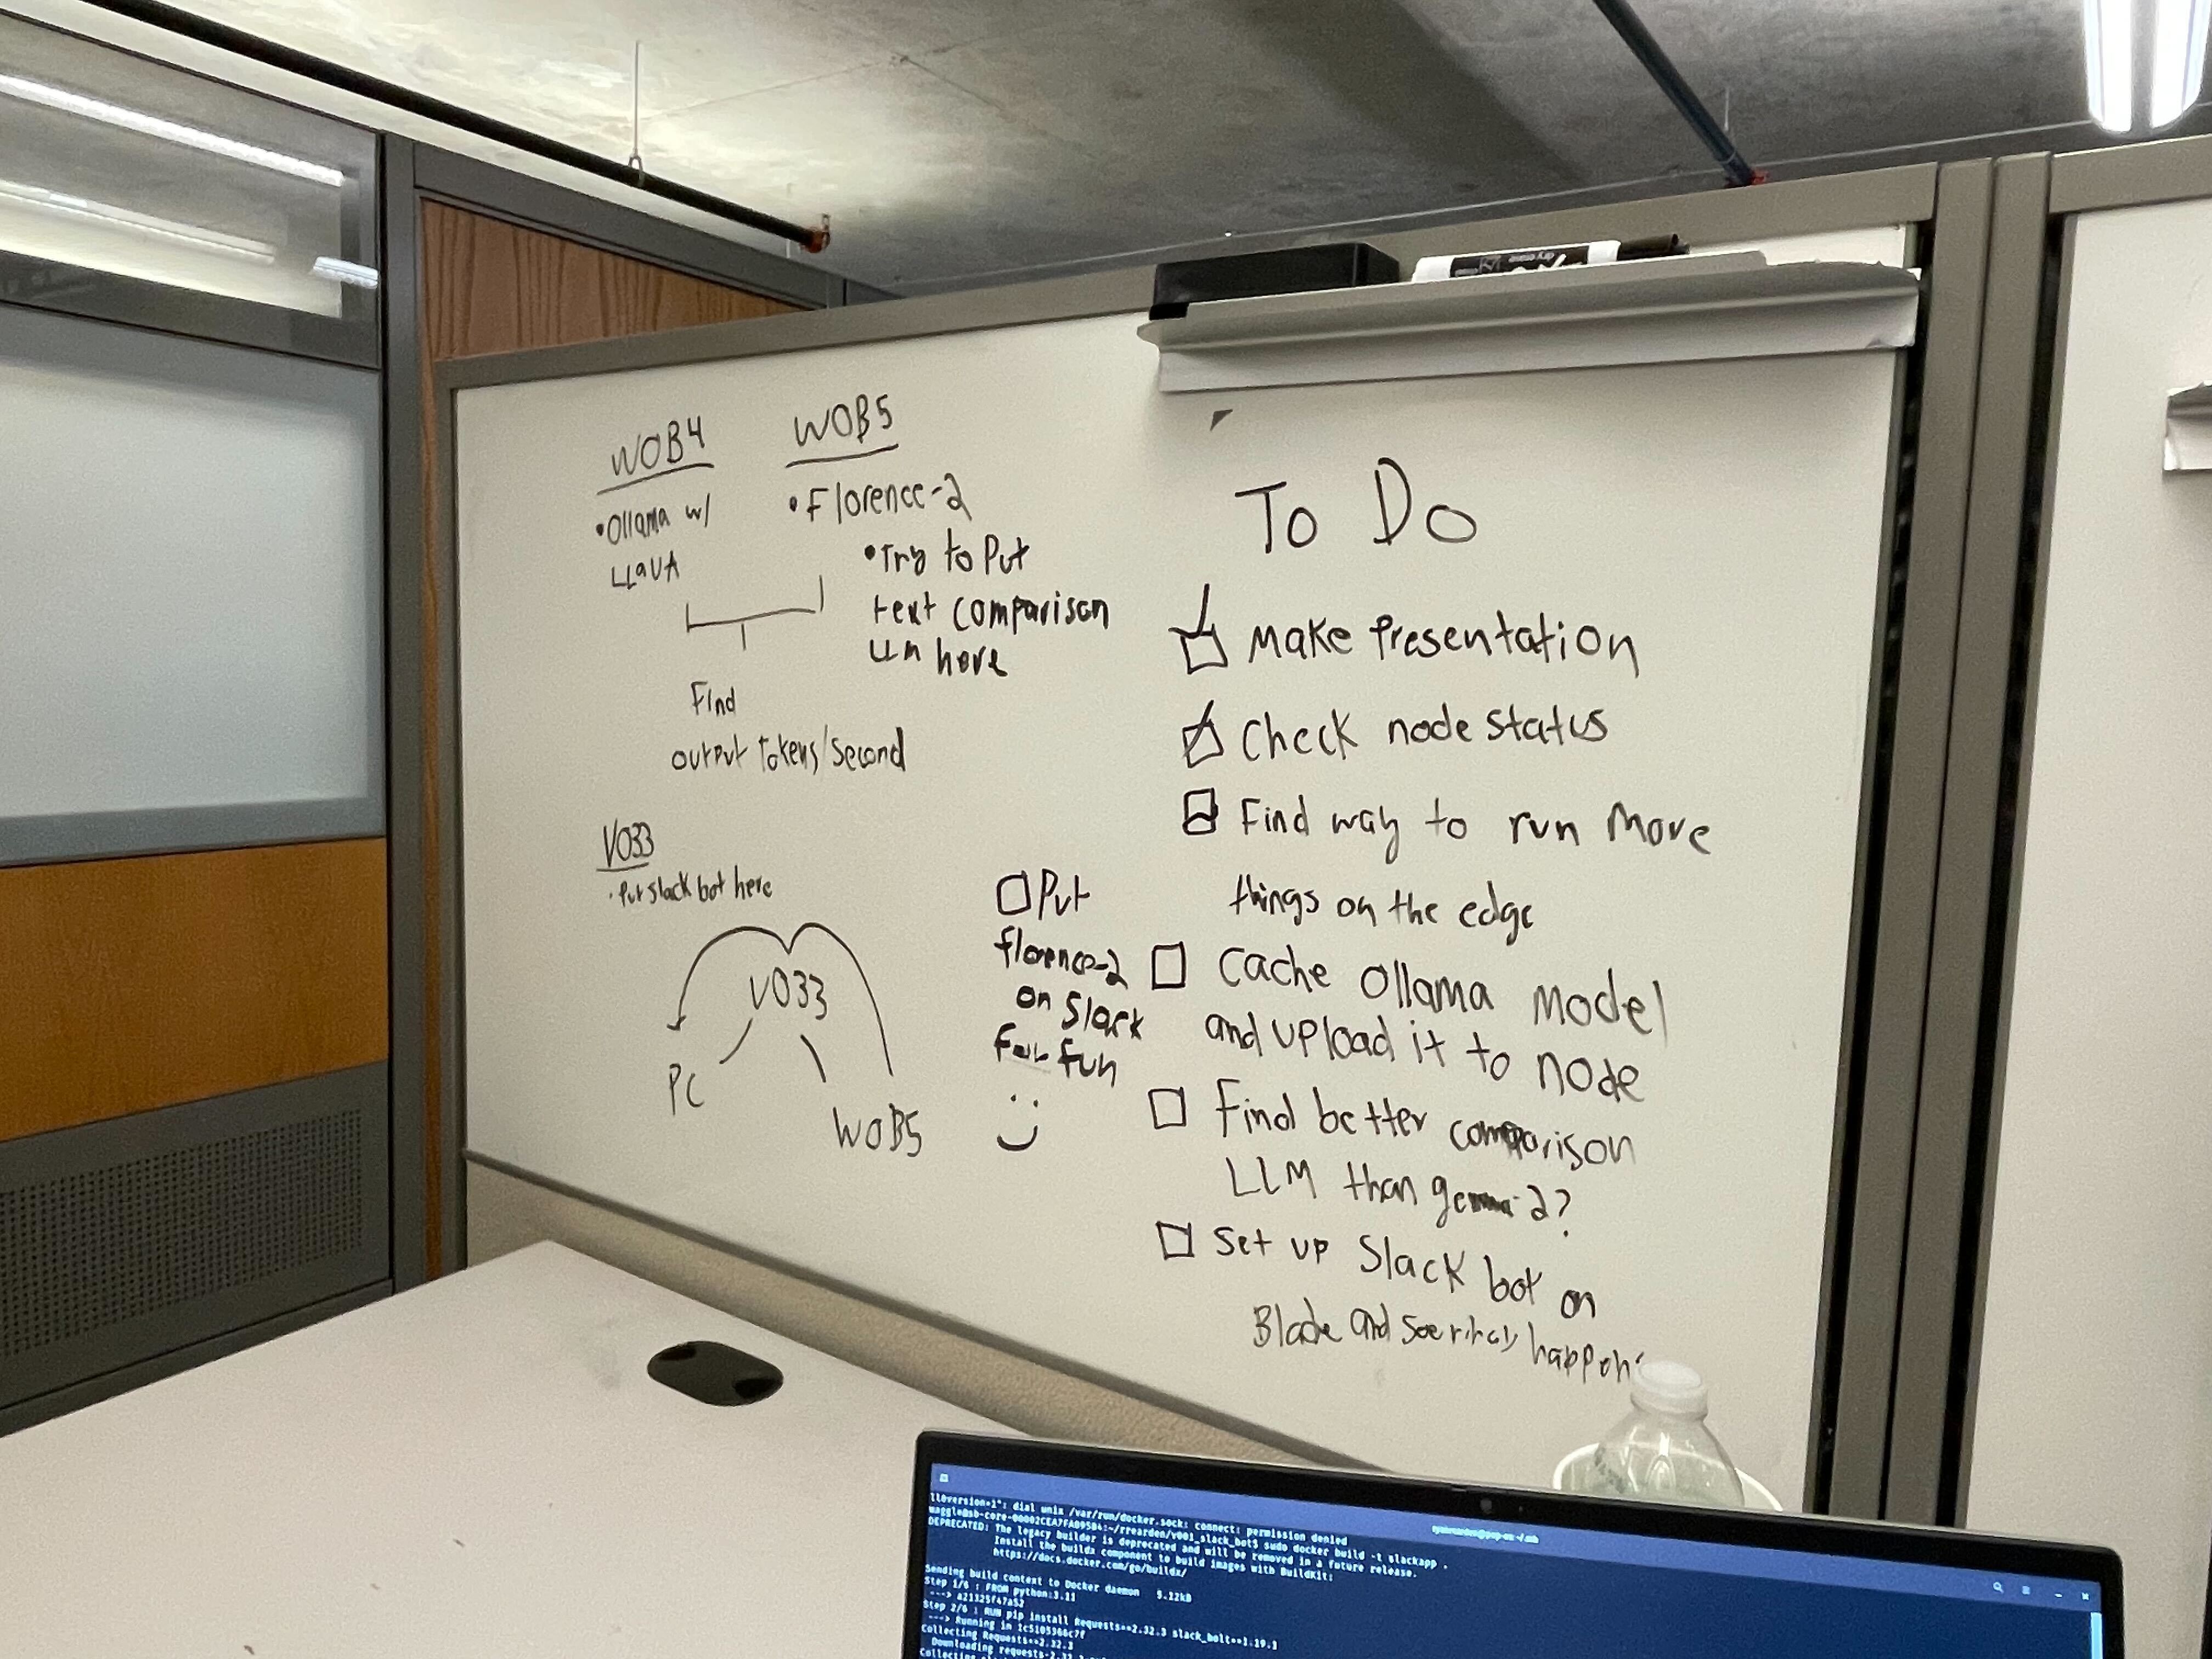 WOB4
•Ollama w/
LLaVA
WOB5
•Florence-2
•Try to Put
text comparison
LLM here
Find
output tokens/second
V033
•Put Slack bot here
V033
PC
WOB5
Put
florence-2
on Slack
for fun
To Do
Make Presentation
Check node status
Find way to run more
things on the edge
Cache Ollama Model
and upload it to node
Find better comparison
LLM than gemma-2?
Set up Slack bot on
Blade and see
dry erase
dial unix /var/run/docker.sock: connect: permission denied
sudo docker build -t slackapp .
DEPRECATED: The legacy builder is deprecated and will be removed in a future release.
Install the buildx component to build images with BuildKit:
https://docs.docker.com/go/buildx/
Sending build context to Docker daemon 5.12kB
Step 1/6 : FROM python:3.11
---> a21325f47a52
Step 2/6 : RUN pip install Requests==2.32.3 slack_bolt==1.19.1
---> Running in 1c5105366c7f
Collecting Requests==2.32.3